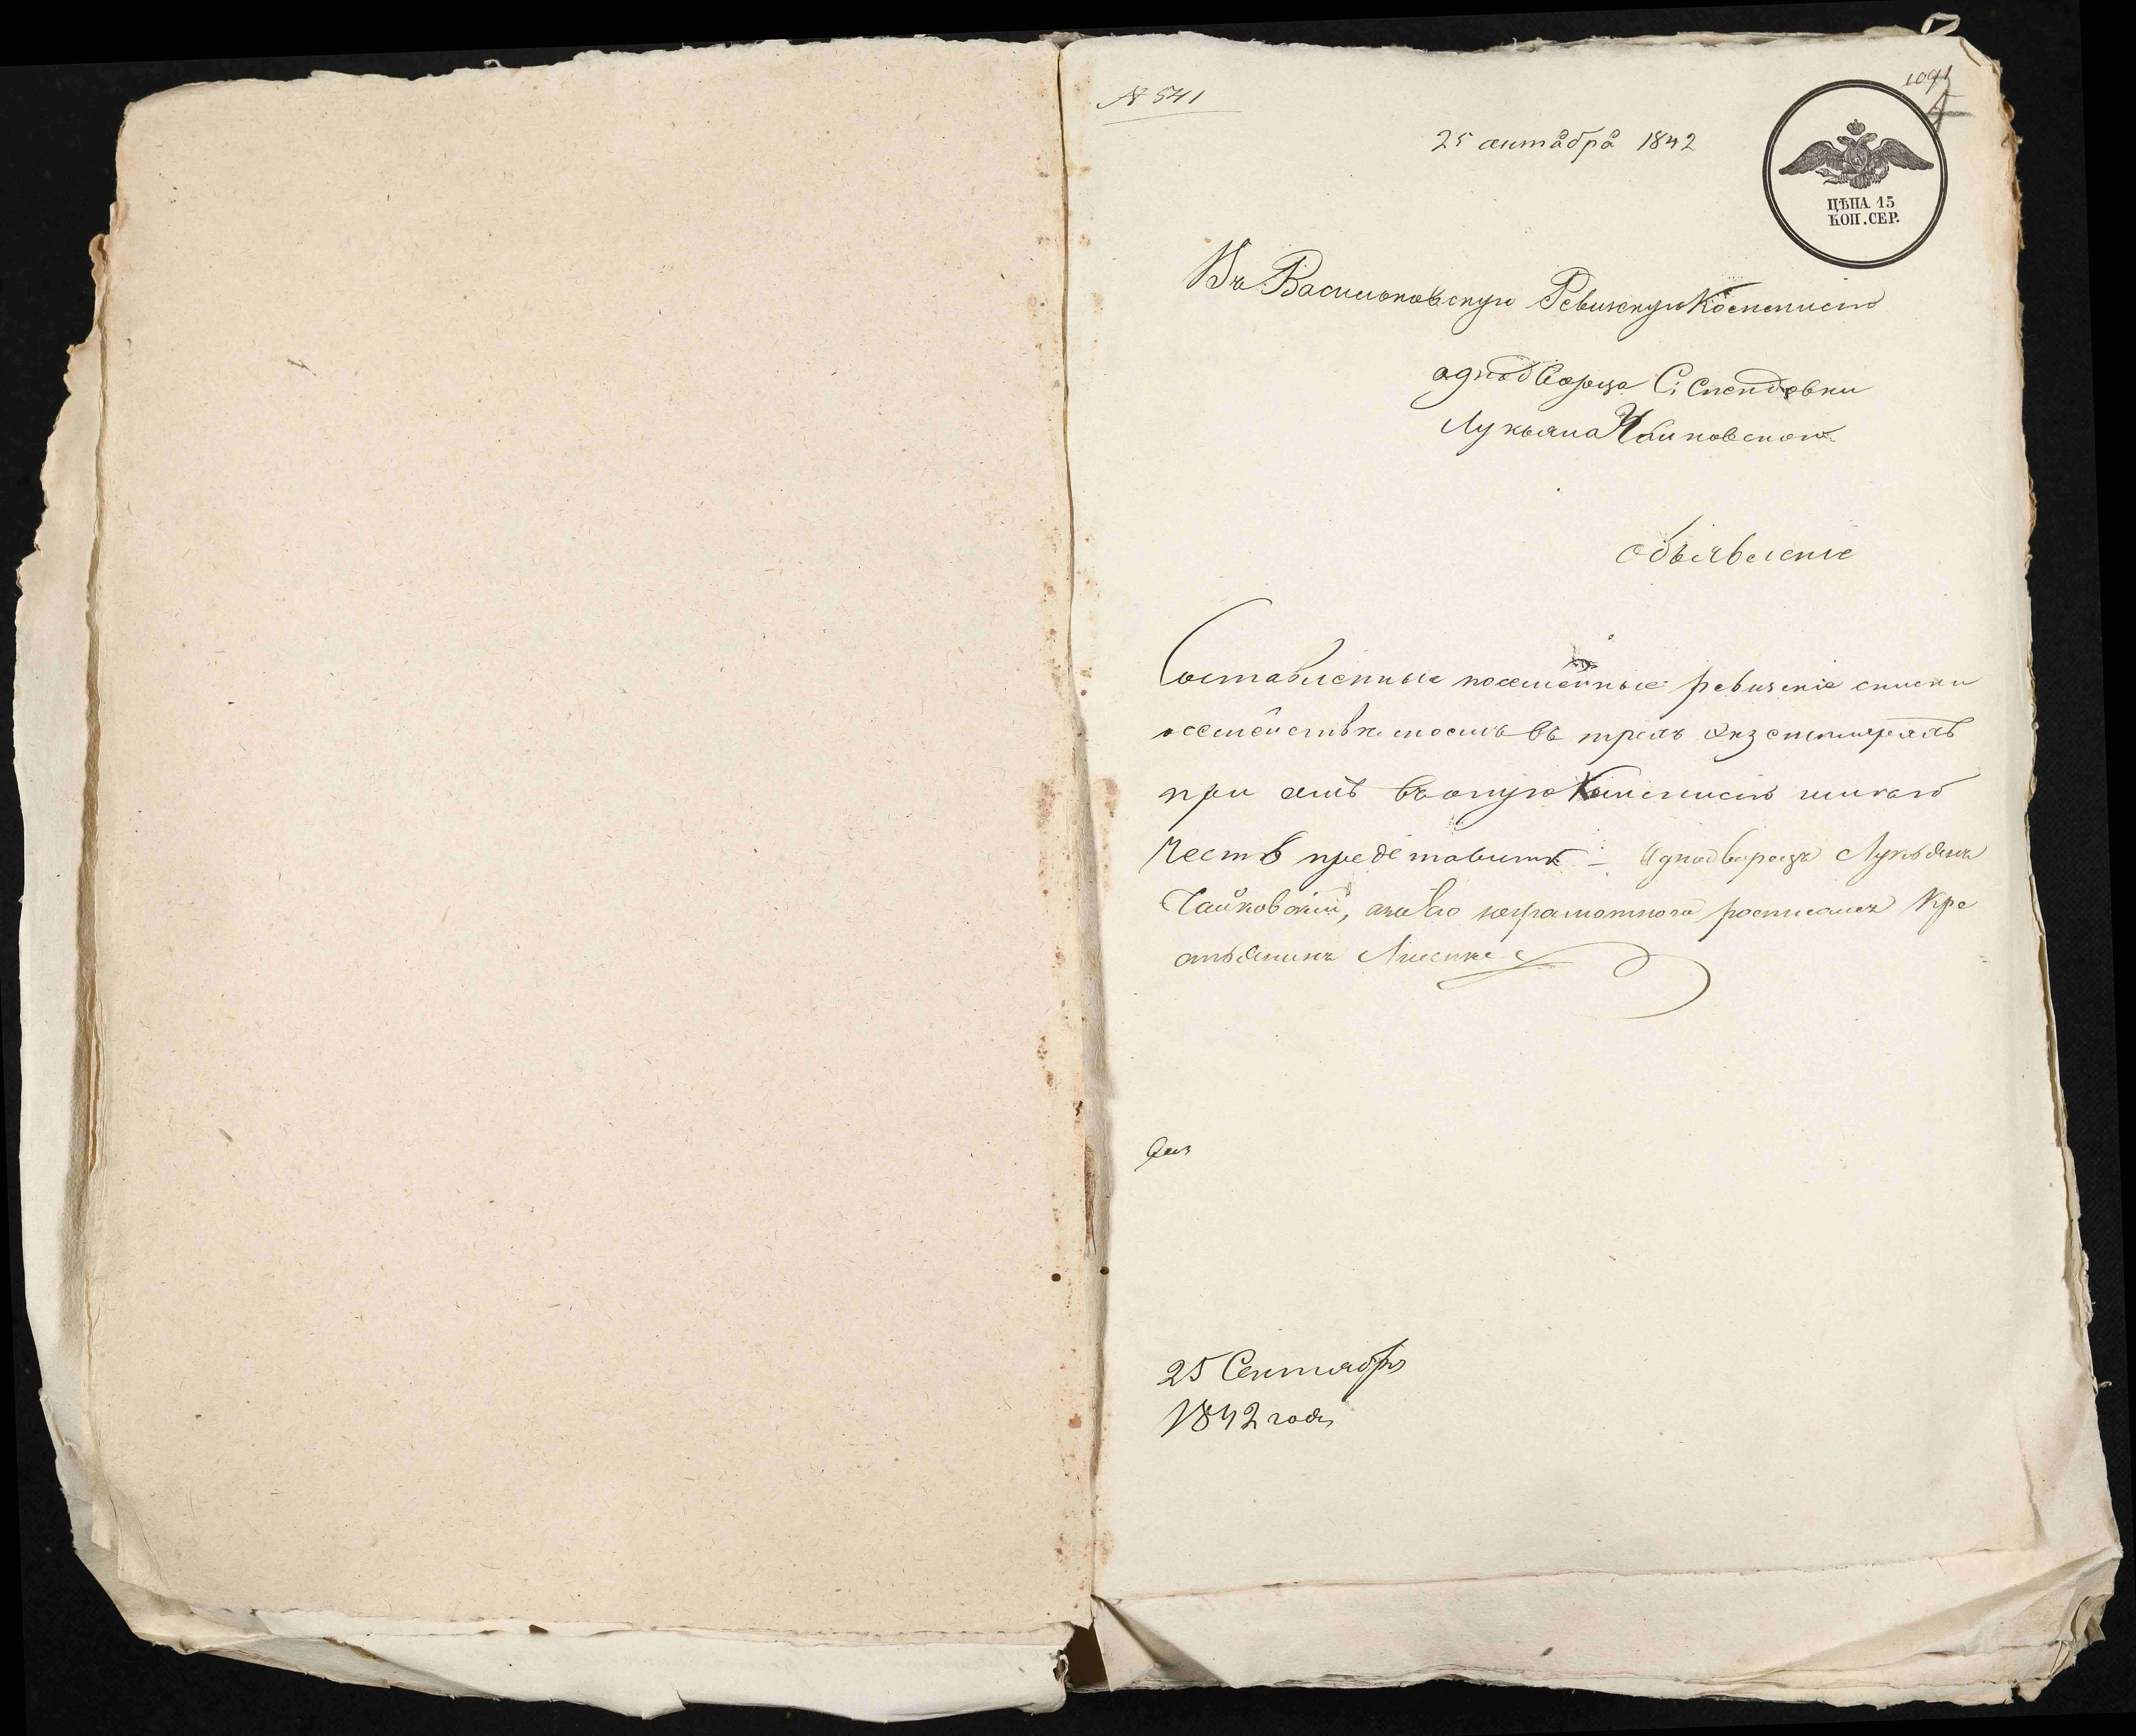 № 541
1091
25 сентября 1842
ЦѢНА 15
КОП. СЕР.
Въ Васильковскую Ревизкую Коммисію
однодворца С:
Лукьяна Чайковского
Объявленіе
Составленные посемейные ревизкіе списки
о семействѣ моемъ въ трехъ экземплярахъ
при семъ въ оную Коммисію имѣю
честь представить – Однодворецъ Лукьянъ
Чайковскій, а за него неграмотного росписался Кре
стьянинъ
25 Сентября
1842 года